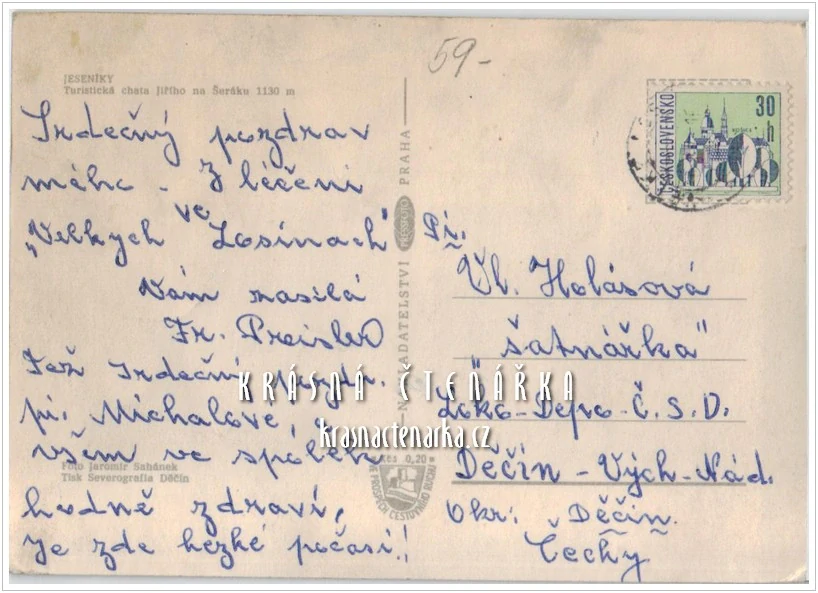 59-
JESENÍKY
Turistická chata Jiřího na Šeráku 1130 m
Srdečný pozdrav
mého - z léčení
ve
"Velkych Losinach"
Vám zasílá
Fr. Preisler
Též srdečný
pí. Michalové,
všem ve
hodně zdraví,
Je zde hezké počasí!
Foto Jaromír Sahánek
Tisk Severografia Děčín
NAKLADATELSTVÍ PRESSFOTO PRAHA
Kčs 0,20
VE PROSPĚCH CESTOVNÍHO RUCHU
ČESKOSLOVENSKO
30 h
Pí.
Vl. Holásová
"šatnářka"
Loko-Depo-Č.S.D.
Děčín-Vých-Nád.
Okr: Děčín.
Čechy
KRÁSNÁ ČTENÁŘKA
krasnactenarka.cz